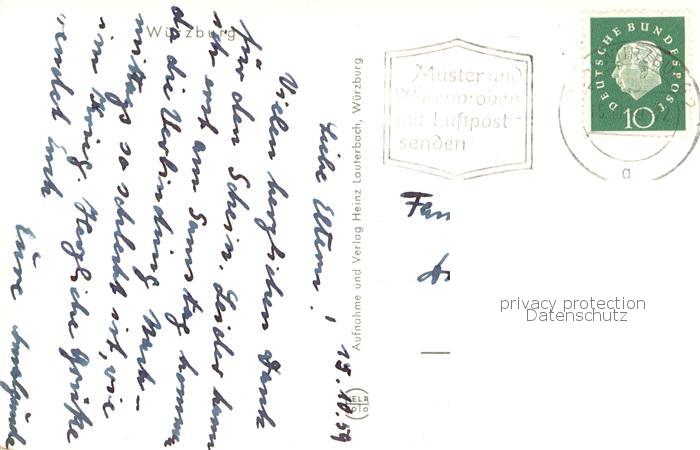 Würzburg
15.10.59
Liebe Eltern!
Vielen herzlichen Dank
für den Schein. Leider kann
ich erst am Samstag kommen
da die Verbindung Nach-
mittags so schlecht ist, wie
im Krieg. Herzliche Grüße
sendet Euch
Eure
Aufnahme und Verlag Heinz Lauterbach, Würzburg
Muster und
Warenproben
mit Luftpost
senden
DEUTSCHE BUNDESPOST
10
a
Fam
privacy protection
Datenschutz